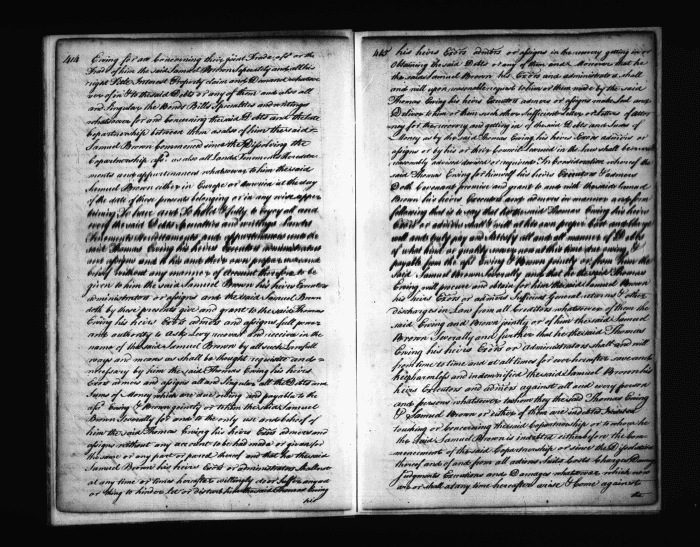 414
Ewing for or Concerning their joint Trade afsd. or the
Trade of him the said Samuel Brown Separately and all his
right Title Interest Property claim and Demand whatsoever
of in & to the said Debts or any of them and also all
and Singular the Bonds Bills Specialties and writings
whatsoever for and Concerning the said Debts and the late
Copartnership between them as also of him the said
Samuel Brown Commenced since the Dissolving the
Copartnership afsd. as also all Lands Tenements Heredita-
ments and appurtenances whatsoever to him the said
Samuel Brown either in Europe or America at the day
of the date of these presents belonging or in any wise apper-
taining To have and To Hold & fully to enjoy all and
every the said Debts Specialties and writings Lands
Tenements Hereditaments and appurtenances unto the
said Thomas Ewing his heirs Executors administrators
and assigns and to his and their own proper use and
behoof without any manner of account therefore to be
given to him the said Samuel Brown his heirs Executors
administrators or assigns and the said Samuel Brown
doth by these presents give and grant to the said Thomas
Ewing his heirs Exors admors and assigns full power
and authority to ask Levy recover and receive in the
name of the said Samuel Brown by all such Lawfull
ways and means as shall be thought requisite and
necessary by him the said Thomas Ewing his heirs
Exors admors and assigns all and Singular the Debts and
Sums of Money which are due owing and payable to the
afsd. Ewing & Brown jointly or to him the said Samuel
Brown Severally for and to the only use and behoof of
him the said Thomas Ewing his heirs Exors admors and
assigns without any account to be had made or given for
the same or any part or parcel thereof and that he the said
Samuel Brown his heirs Exors or administrators shall not
at any time or times hereafter willingly do or suffer any act
or thing to hinder Let or disturb him the said Thomas Ewing
his
415
his heirs Exors admors or assigns in the money getting in or
Obtaining the said Debts or any of them and Moreover that he
the said Samuel Brown his Exors and administrators shall
and will upon reasonable request to him or them made by the said
Thomas Ewing his heirs Executors admors or assigns make Seal and
Deliver to him or them such other Sufficient Letter or Letters of attor-
ney for the recovery and getting in of the said Debts and Sums of
Money as by the said Thomas Ewing his heirs Exors admors or
assigns or by his or their Council learned in the Law shall be
reasonably advised devised or required In Consideration whereof the
said Thomas Ewing for himself his heirs Executors & admors
Doth Covenant promise and grant to and with the said Samuel
Brown his heirs Executors and admors in manner and form
following that is to say that he the said Thomas Ewing his heirs
Exors or admors shall & will at his own proper Costs and charges
well and truly pay and Satisfy all and all manner of Debts
of what kind or quality soever now at this time due owing &
payable from the afsd. Ewing & Brown jointly or from him the
said Samuel Brown Severally and that he the said Thomas
Ewing will procure and obtain for him the said Samuel Brown
his heirs Exors or admors Sufficient General releases & other
discharges in Law from all Creditors whatsoever of them the
said Ewing and Brown jointly or of him the said Samuel
Brown Severally and further that he the said Thomas
Ewing his heirs Exors or Administrators shall and will
from time to time and at all times for ever hereafter save and
keep harmless and indemnified the said Samuel Brown his
heirs Executors and admors against all and every person
and persons whatsoever to whom they the said Thomas Ewing
& Samuel Brown or either of them are indebted
touching or concerning the said Copartnership or to whom he
the said Samuel Brown is indebted either before the Com-
mencement of the said Copartnership or since the Dissolution
thereof and of and from all actions Suits Costs Charges
Judgments Executions and Damages whatsoever which now
are or shall at any time hereafter arise & Come against